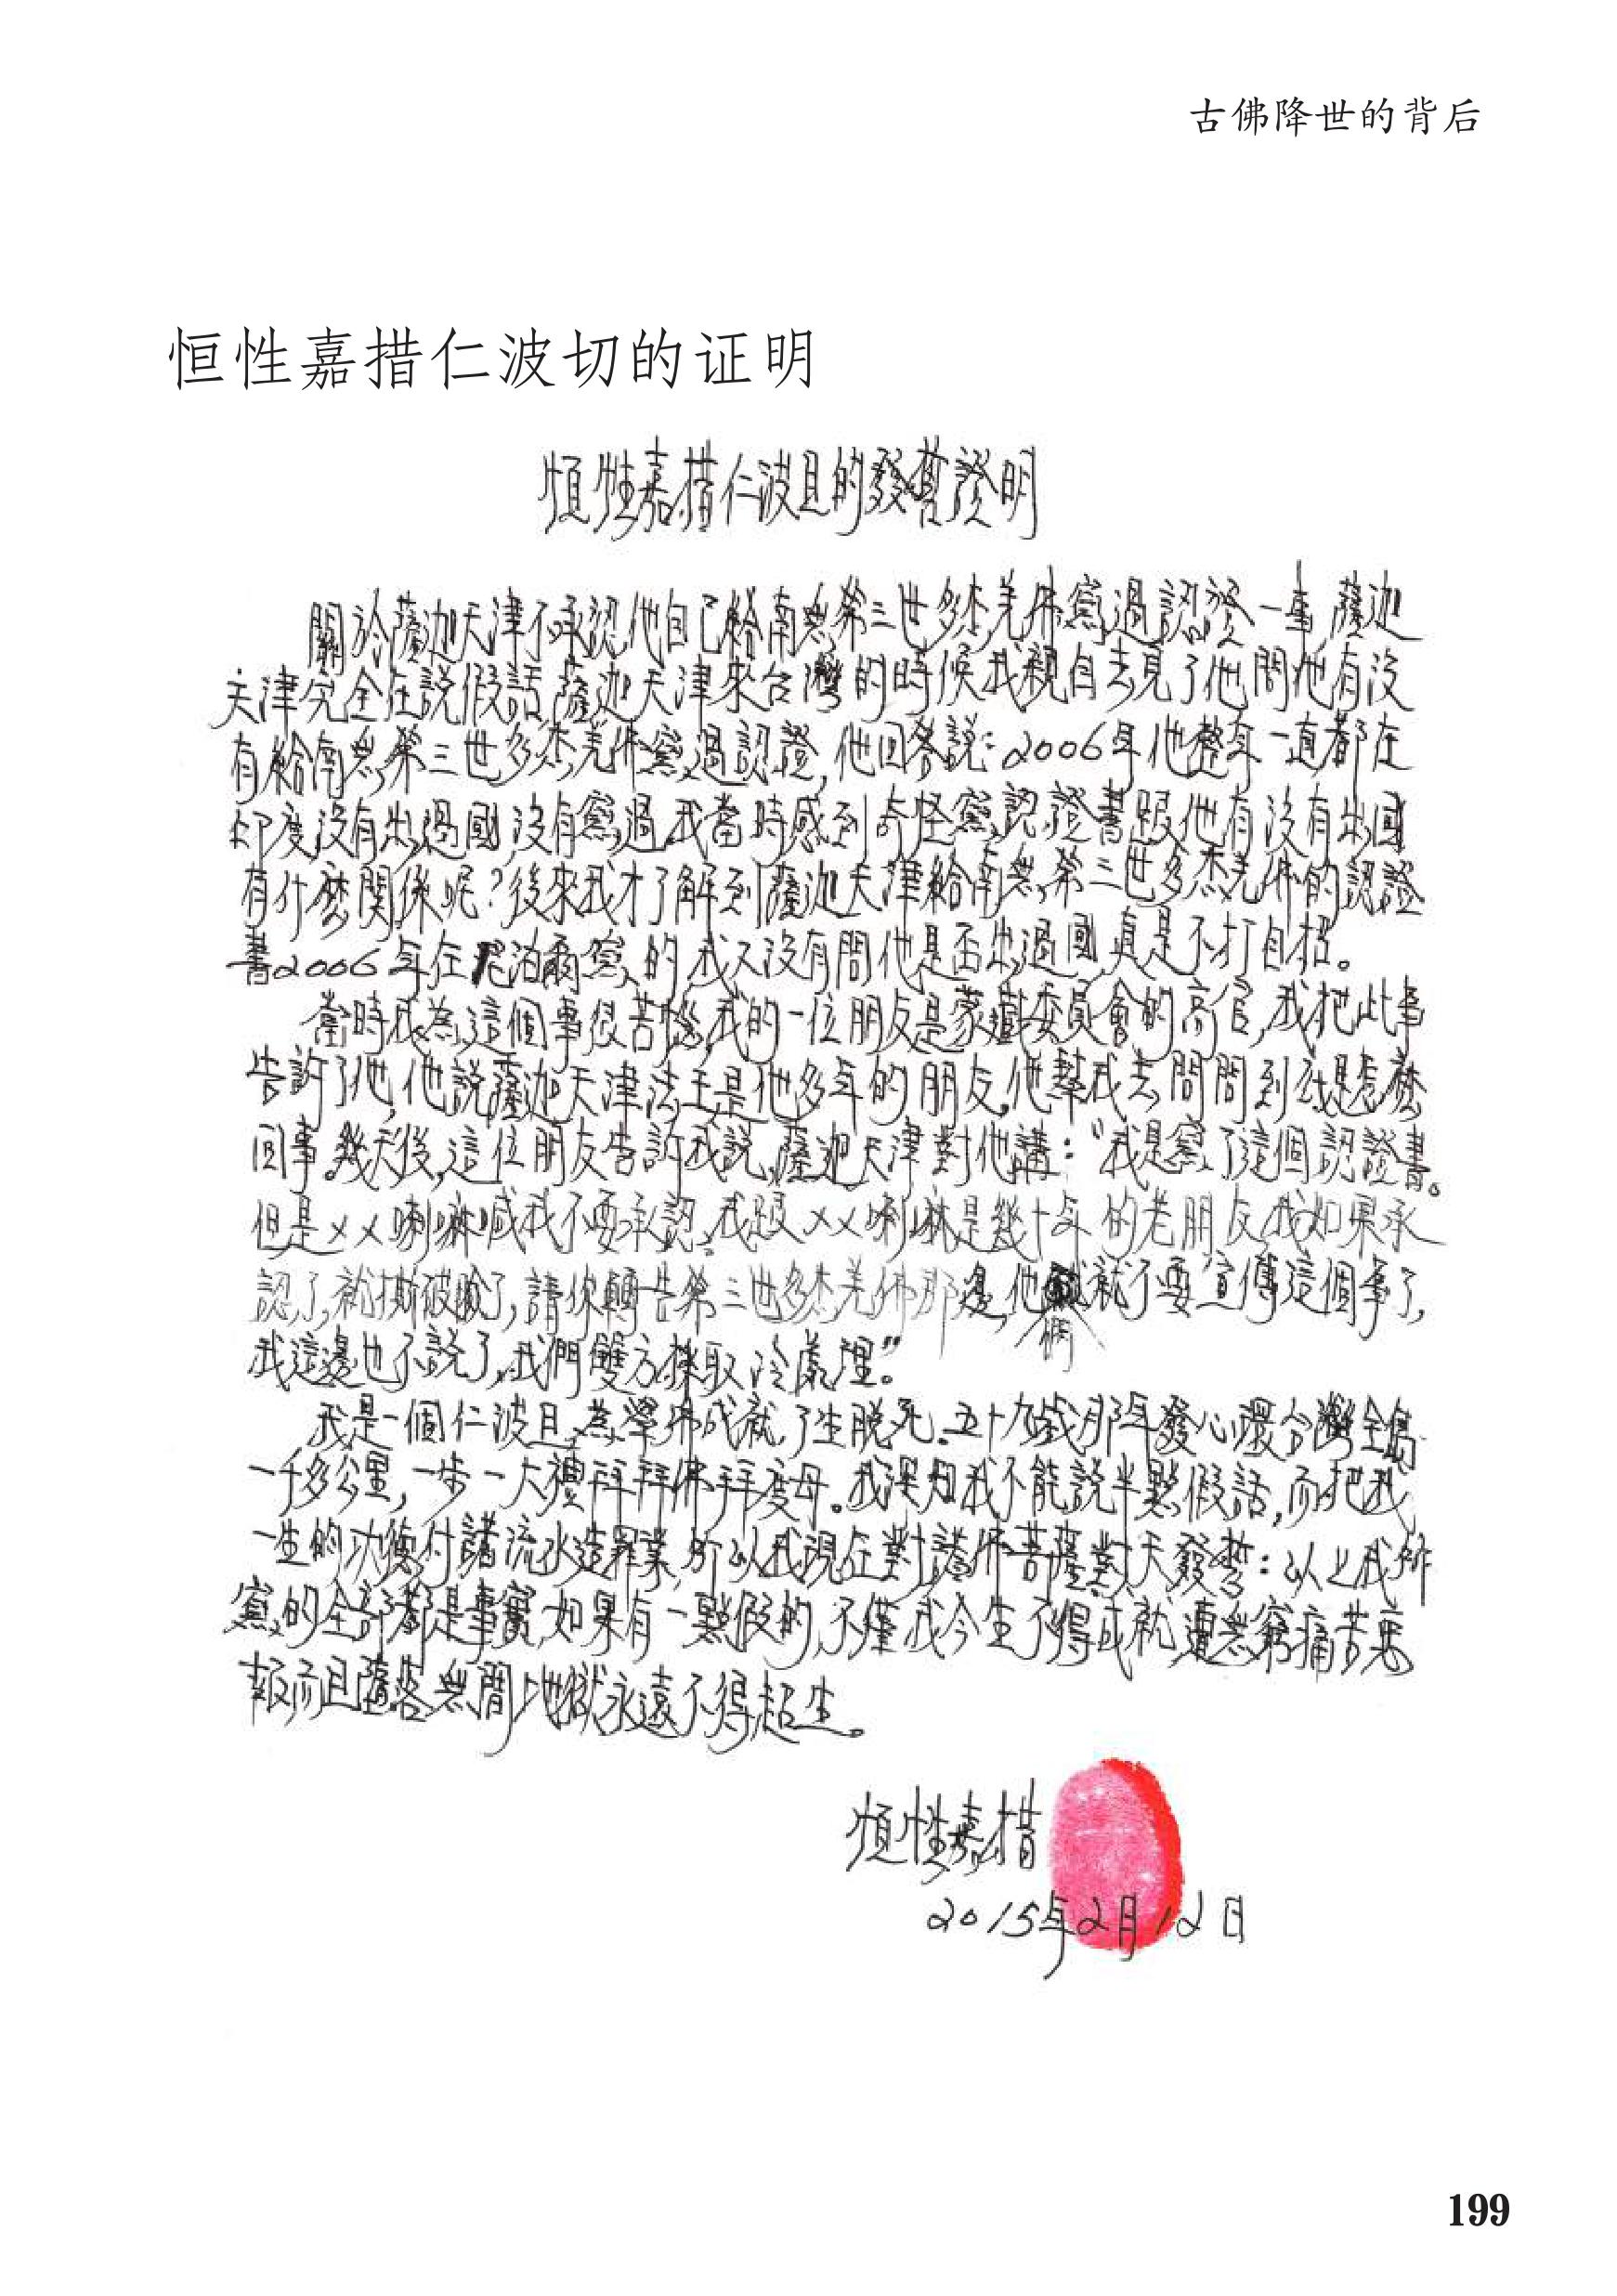 古佛降世的背后
恒性嘉措仁波切的证明
恒性嘉措仁波且的發誓證明
關於薩迦天津不承認他自己給南無第三世多杰羌佛寫過認證一事薩迦
天津完全在說假話薩迦天津來台灣的時候我親自去見了他問他有沒
有給南無第三世多杰羌佛寫過認證,他回答說:2006年他整年一直都在
印度沒有出過國沒有寫過我當時感到奇怪寫認證書跟他有沒有出國
有什麼關係呢?後來我才了解到薩迦天津給南無第三世多杰羌佛的認證
書2006年在尼泊爾寫的我又沒有問他是否出過國真是不打自招。
當時我為這個事很苦惱,我的一位朋友是蒙藏委員會的高官,我把此事
告訴了他,他說薩迦天津法王是他多年的朋友,他幫我去問問到底是怎麼
回事幾天後,這位朋友告訴我說,薩迦天津對他講:“我是寫了這個認證書。
但是××喇嘛喊我不要承認,我跟××喇嘛是幾十年的老朋友我如果承
認了,就撕破臉了,請你轉告第三世多杰羌佛那邊,他們就不要宣傳這個事了,
我這邊也不說了,我們雙方採取冷處理。”
我是一個仁波且,為學佛成就,了生脫死.五十九歲那年發心環台灣全島
一千多公里,一步一大禮拜拜佛拜度母。我深知我不能說半點假話,而把我
一生的功德付諸流水造罪業所以我現在對諸佛菩薩對天發誓:以上我所
寫的全部都是事實,如果有一點假的,不僅我今生不得成就,遭無窮痛苦惡
報而且墮落無間地獄永遠不得超生。
恒性嘉措
2015年2月12日
199